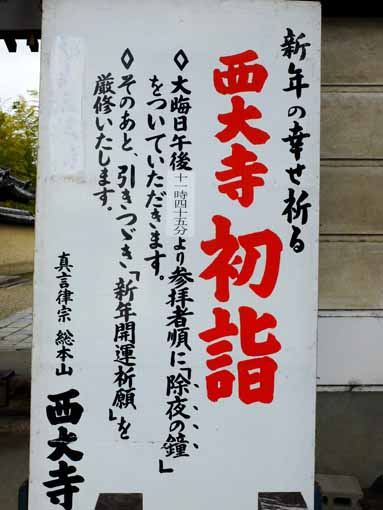 新年の幸せ祈る
西大寺 初詣
◇大晦日午後十一時四十五分より参拝者順に「除夜の鐘」
をついていただきます。
◇そのあと、引きつづき「新年開運祈願」を
厳修いたします。
真言律宗 総本山 西大寺